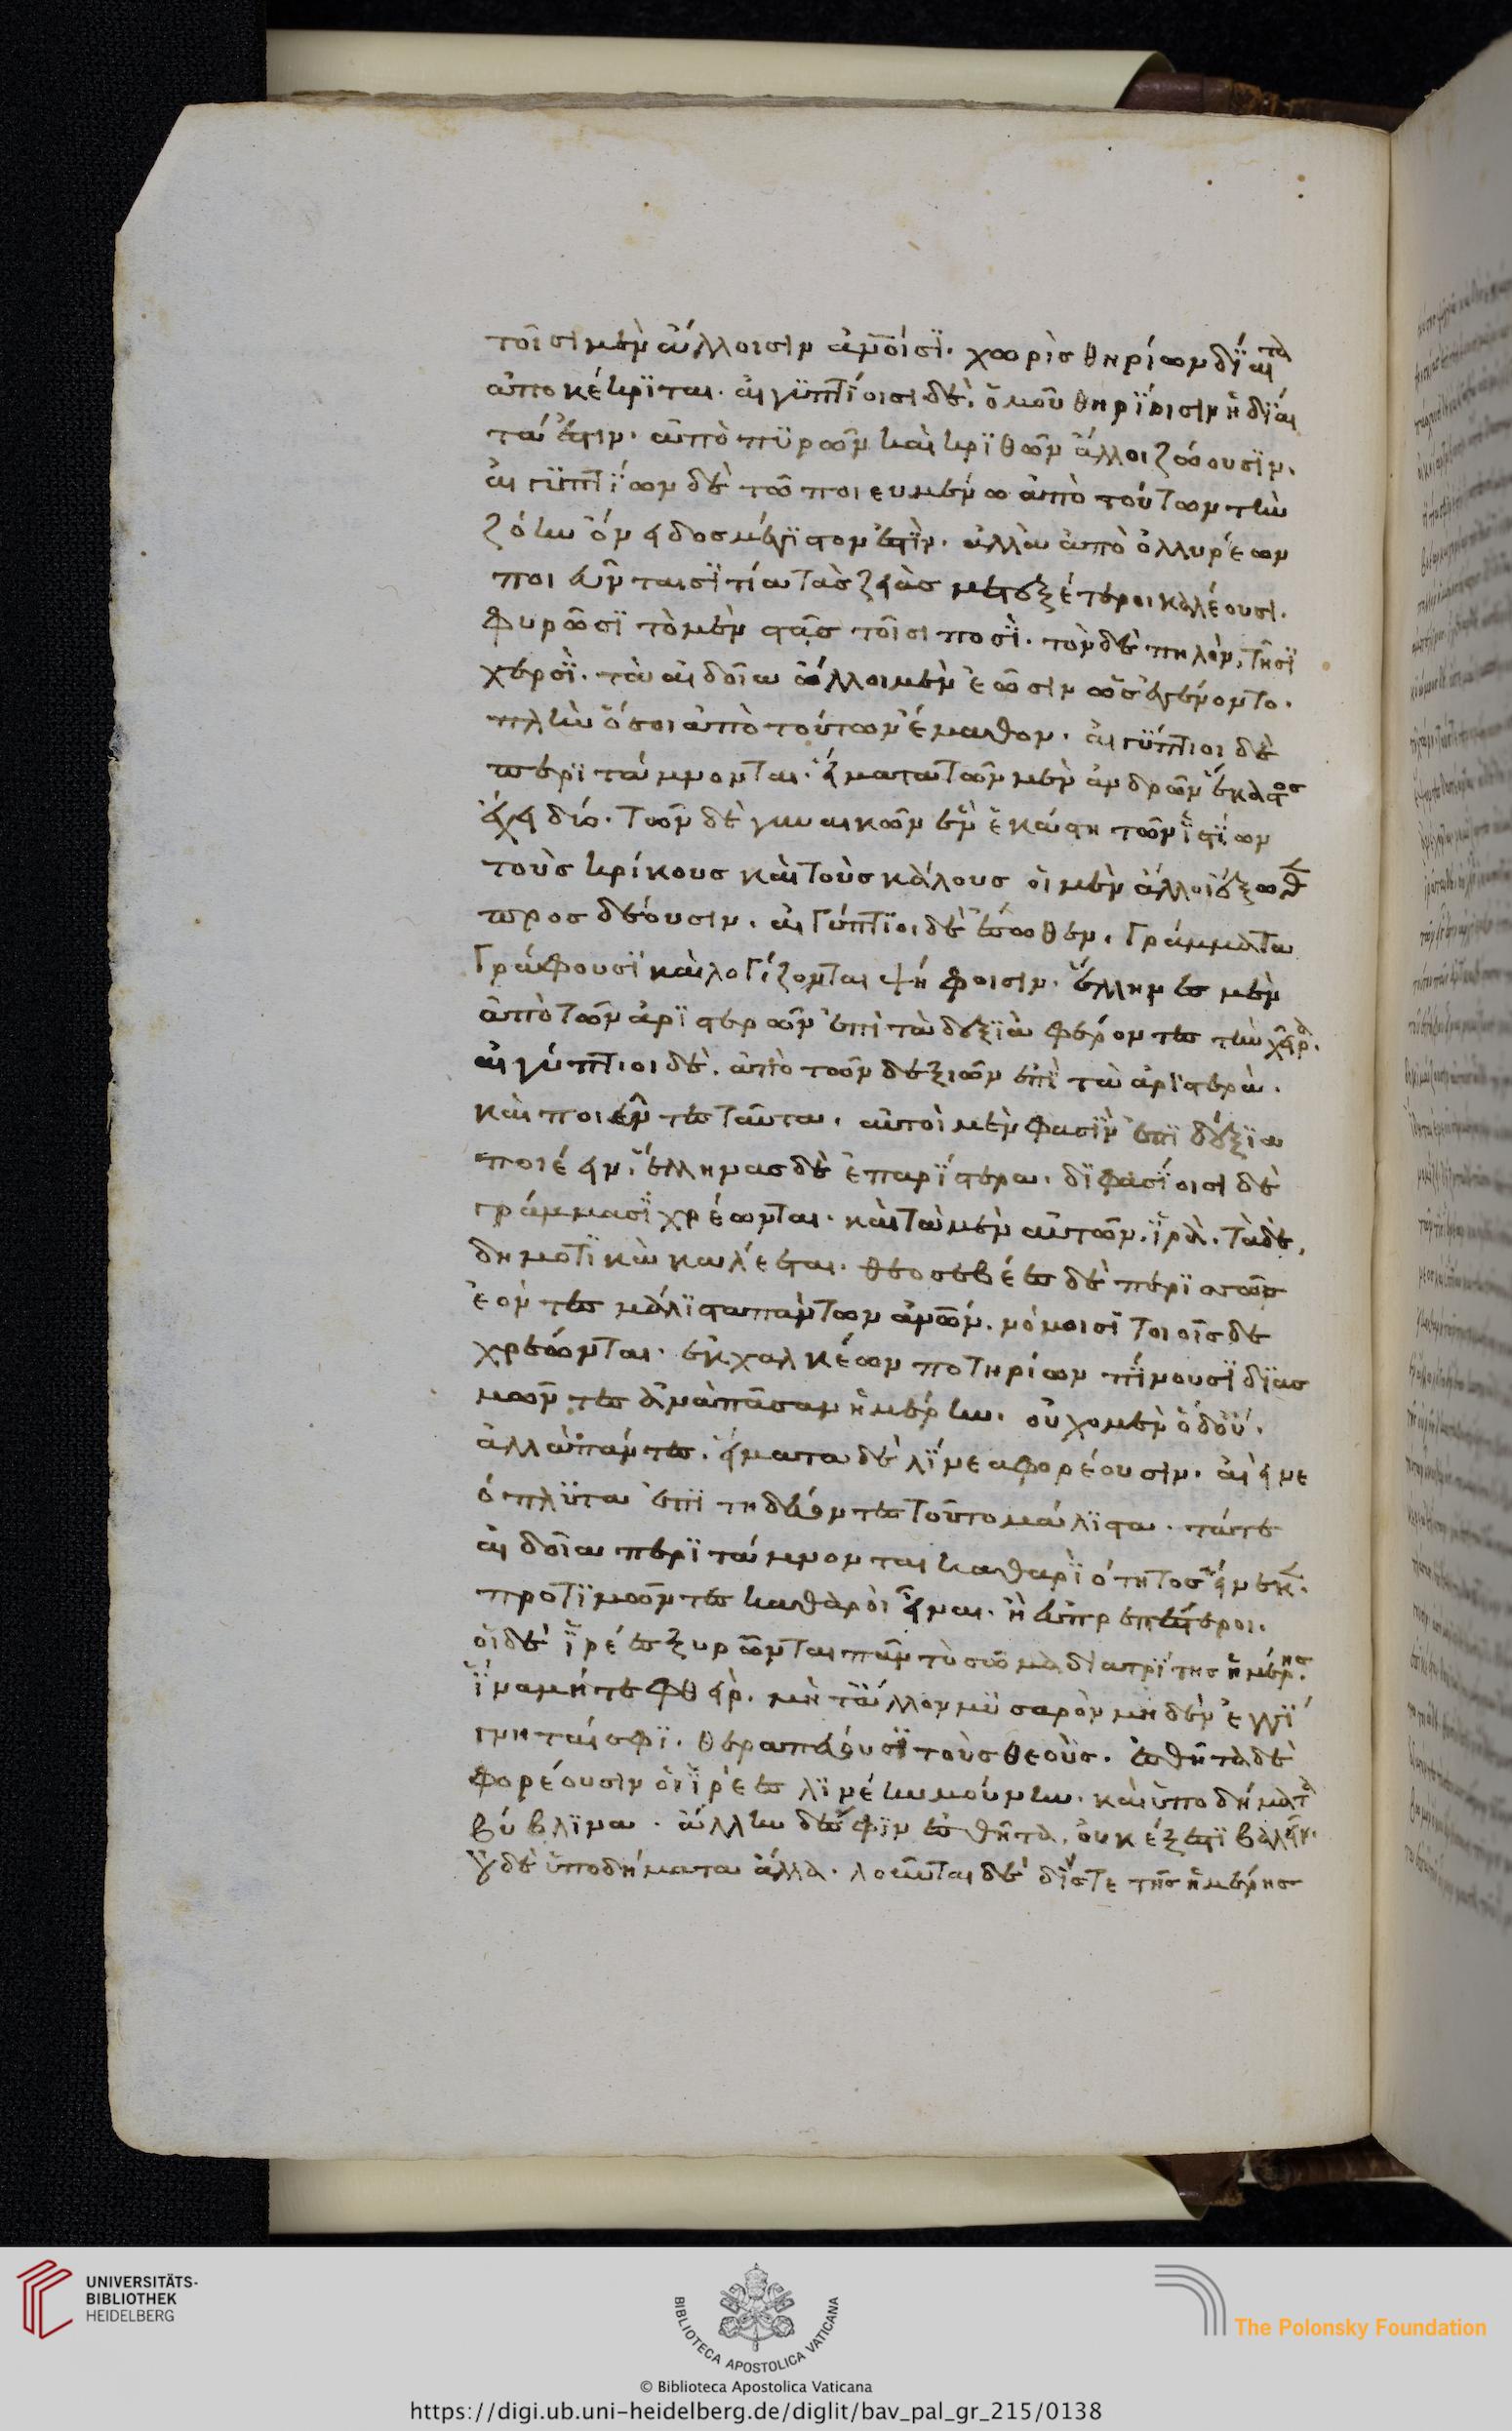 τοῖσι μὲν ἄλλοισιν ἀνοίσϊ. χωρὶσ θηρίων δΐαιτα
ἀποκέκρϊται. αἰγϋπτίοισι δὲ. ὁμοῦ θηρΐοισιν ἡ δΐαι
τά ἐστιν. ἀπὸ πϋρῶν καὶ κρϊθῶν ἄλλοι ζώουσϊν.
αἰγϋπτΐων δὲ τῶ ποιευμένω ἀπὸ τούτων τὴν
ζόην ὄνειδοσ μέγϊστον ἐστὶν. ἀλλὰ ἀπὸ ὀλυρέων
ποιεῦνται σϊτία τὰσ ζειὰσ μετεξέτεροι καλέουσι.
φυρῶσϊ τὸ μὲν σταῖσ τοῖσι ποσῒ. τὸν δὲ πηλὸν, τῆσϊ
χερσῒ. τὰ αἰδοῖα ἄλλοι μὲν ἐῶσιν ὡσ ἐγένοντο.
πλὴν ὅσοι ἀπὸ τούτων ἔμαθον. αἰγϋπτιοι δὲ
περϊτάμνονται. εἵματα τῶν μὲν ἀνδρῶν ἕκαστοσ
ἔχει δύο. τῶν δὲ γυναικῶν ἓν ἑκάστη τῶν ϊστΐων
τοὺσ κρίκουσ καὶ τοὺσ κάλουσ οἱ μὲν ἄλλοι ἔξωθεν
προσδέουσιν. αἰγύπτϊοι δὲ ἔσωθεν. γράμματα
γράφουσϊ καὶ λογίζονται ψήφοισιν. ἕλληνεσ μὲν
ἀπὸ τῶν ἀρϊστερῶν ἐπὶ τὰ δεξϊὰ φέροντεσ τὴν χεῖρα.
αἰγύπτιοι δὲ. ἀπὸ τῶν δεξιῶν ἐπῒ τὰ ἀρϊστερὰ.
καὶ ποιεῦντεσ ταῦτα. αὐτοὶ μὲν φασῒν ἐπϊ δέξϊα
ποιέειν. ἕλληνασ δὲ ἐπαρΐστερα. δϊφασΐοισι δὲ
γράμμασϊ χρέωνται. καὶ τὰ μὲν αὐτῶν. ϊρὰ. τὰ δὲ,
δημοτϊκὰ καλέεται. θεοσεβέεσ δὲ περϊσσῶσ
ἐόντεσ μάλϊστα πάντων ἀνῶν. νόμοισϊ τοιοῖσδε
χρεώνται. ἐκ χαλκέων ποτηρίων πΐνουσϊ δϊασ
μῶντεσ ἀνὰ πᾶσαν ἡμέρην. οὐχ ὁ μὲν ὁ δ οὔ.
ἀλλὰ πάντεσ. εἵματα δὲ λΐνεα φορέουσιν. αἰεὶ νε
όπλϋτα ἐπϊτηδεύοντεσ τοῦτο μάλϊστα. τάτε
αἰδοῖα περϊτάμνονται καθαρϊότητοσ εἵνεκεν.
προτϊμῶντεσ καθαροὶ εἶναι. ἢ εὐπρεπέστεροι.
οἱ δὲ ϊρέεσ ξυρῶνται πᾶν τὸ σῶμα διὰ τρίτησ ἡμέρησ.
ΐνα μήτε φθεὶρ. μήτ ἄλλο μϋσαρὸν μηδὲν ἐγγΐ
γνηταί σφϊ. θεραπεύουσϊ τοὺσ θεοὺσ. ἐσθῆτα δὲ
φορέουσιν οἱ ϊρέεσ λϊνέην μούνην. καὶ ὑποδήματα
βύβλϊνα. ἄλλην δέ σφϊν ἐσθῆτα. οὐκ ἔξεστϊ βαλεῖν.
οὐδὲ ὑποδήματα ἄλλα. λοῦνται δὲ δΐστε τῆσ ἡμέρησ
UNIVERSITÄTS-
BIBLIOTHEK
HEIDELBERG
BIBLIOTECA APOSTOLICA VATICANA
The Polonsky Foundation
© Biblioteca Apostolica Vaticana
https://digi.ub.uni-heidelberg.de/diglit/bav_pal_gr_215/0138